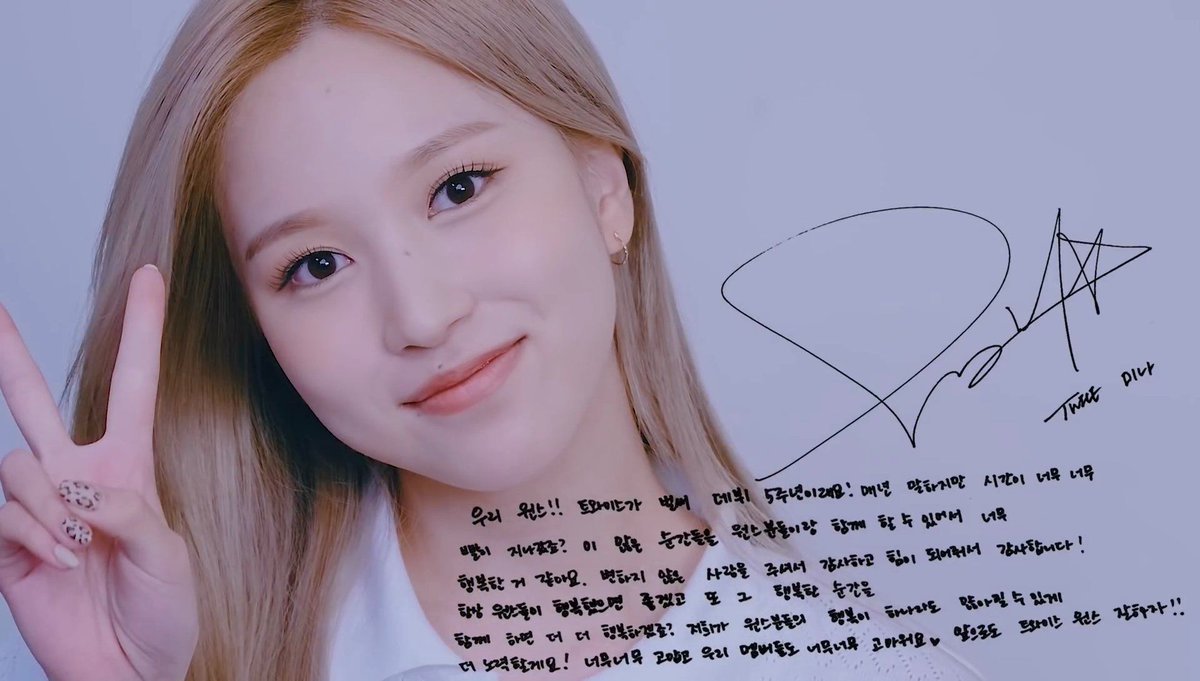 Twice 미나
우리 원스!! 트와이스가 벌써 데뷔 5주년이래요! 매년 말하지만 시간이 너무 너무
빨리 지나갔죠? 이 많은 순간들을 원스분들이랑 함께 할 수 있어서 너무
행복한 거 같아요. 변하지 않은 사랑을 주셔서 감사하고 힘이 되어줘서 감사합니다!
항상 원스들이 행복했으면 좋겠고 또 그 행복한 순간을
함께 하면 더 더 행복하겠죠? 저희가 원스분들의 행복이 하나라도 많아질 수 있게
더 노력할게요! 너무너무 고맙고 우리 멤버들도 너무너무 고마워요♥ 앞으로도 트와이스 원스 잘하자!!